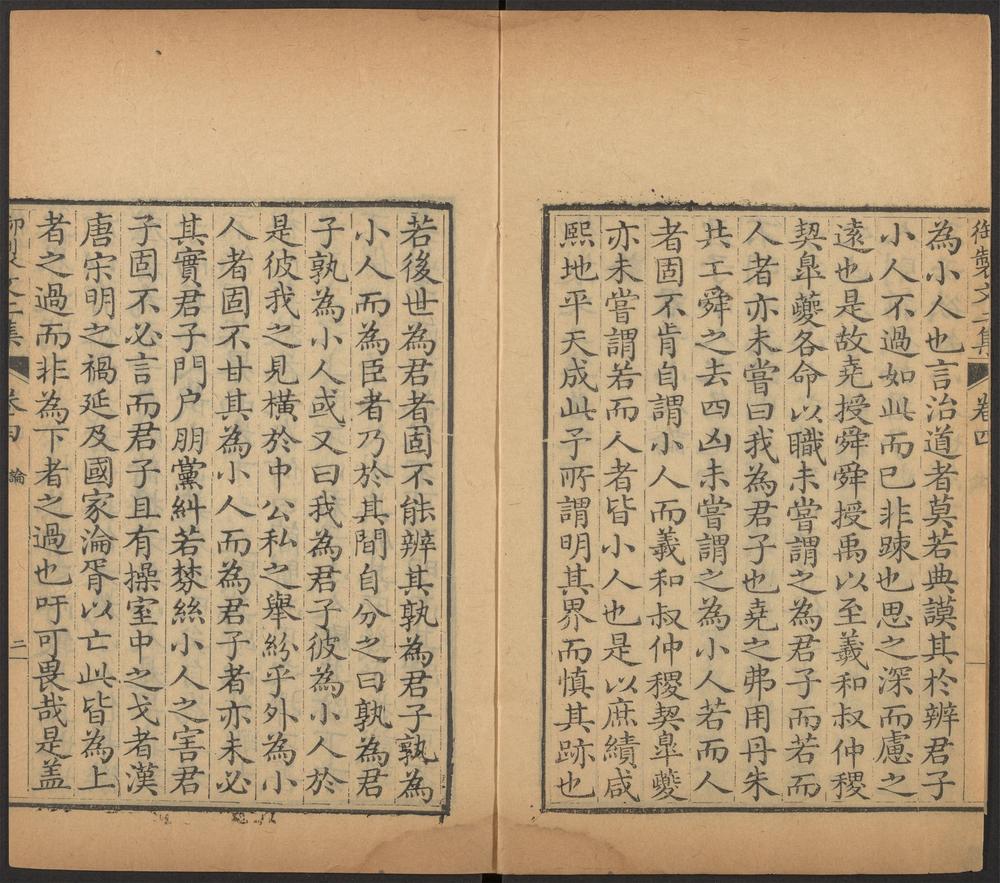 御製文二集 卷四
為小人也言治道者莫若典謨其於辨君子
小人不過如此而已非踈也思之深而慮之
遠也是故堯授舜舜授禹以至羲和叔仲稷
契臯夔各命以職未嘗謂之為君子而若而
人者亦未嘗曰我為君子也堯之弗用丹朱
共工舜之去四凶未嘗謂之為小人若而人
者固不肯自謂小人而羲和叔仲稷契臯夔
亦未嘗謂若而人者皆小人也是以庶績咸
熙地平天成此予所謂明其界而慎其跡也
若後世為君者固不能辨其孰為君子孰為
小人而為臣者乃於其間自分之曰孰為君
子孰為小人或又曰我為君子彼為小人於
是彼我之見橫於中公私之舉紛乎外為小
人者固不甘其為小人而為君子者亦未必
其實君子門户朋黨糾若棼絲小人之害君
子固不必言而君子且有操室中之戈者漢
唐宋明之禍延及國家淪胥以亡此皆為上
者之過而非為下者之過也吁可畏哉是盖
御製文二集 卷四 論 二